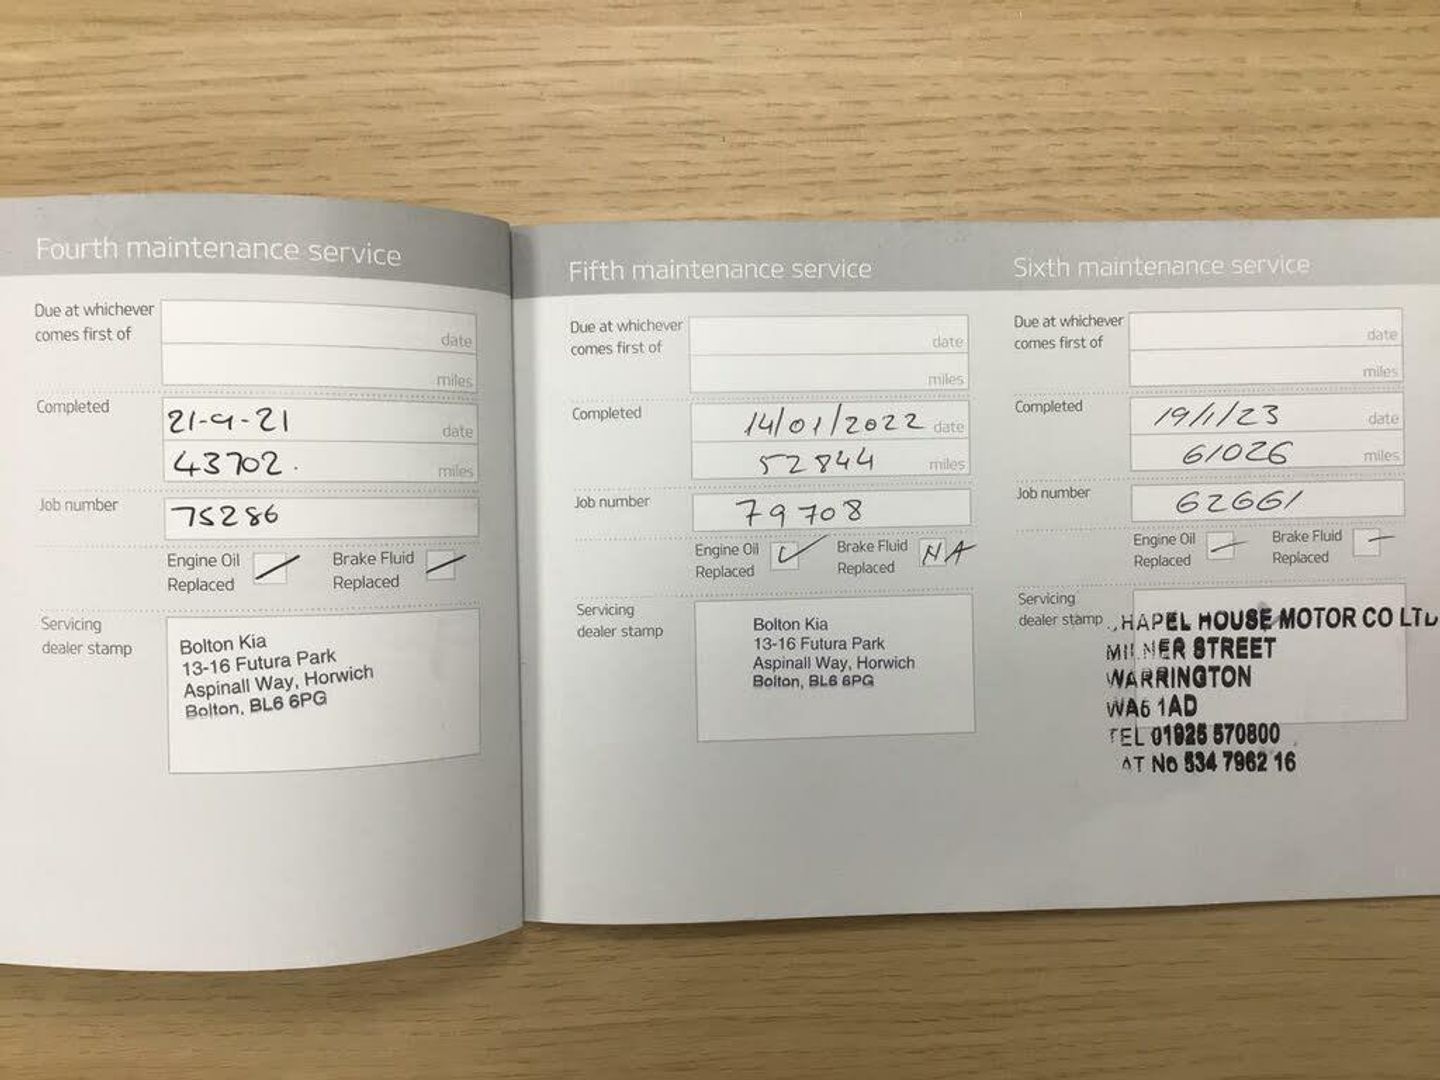 Fourth maintenance service
Due at whichever
comes first of
date
miles
Completed
21-9-21 date
43702. miles
Job number 75286
Engine Oil
Replaced
Brake Fluid
Replaced
Servicing
dealer stamp
Bolton Kia
13-16 Futura Park
Aspinall Way, Horwich
Bolton, BL6 6PG
Fifth maintenance service
Due at whichever
comes first of
date
miles
Completed
14/01/2022 date
52844 miles
Job number 79708
Engine Oil
Replaced
Brake Fluid
Replaced
NA
Servicing
dealer stamp
Bolton Kia
13-16 Futura Park
Aspinall Way, Horwich
Bolton, BL6 6PG
Sixth maintenance service
Due at whichever
comes first of
date
miles
Completed
19/1/23 date
61026 miles
Job number 62661
Engine Oil
Replaced
Brake Fluid
Replaced
Servicing
dealer stamp
HAPEL HOUSE MOTOR CO LTD
MILNER STREET
WARRINGTON
WA5 1AD
TEL 01925 570800
AT No 534 7962 16